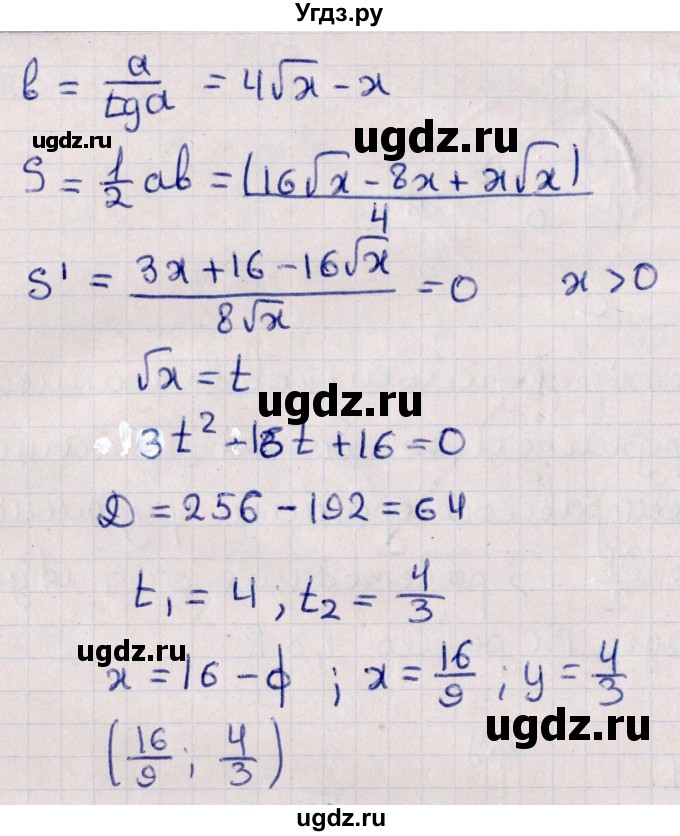 Угдз.ру
b = a/tgα = 4√x - x
ugdz.ru ugdz.ru
S = 1/2 ab = (16√x - 8x + x√x)/4
S' = (3x + 16 - 16√x)/(8√x) = 0 x > 0
√x = t
ugdz.ru
3t² - 16t + 16 = 0
D = 256 - 192 = 64
t₁ = 4 ; t₂ = 4/3
ugdz.ru
x = 16 - ф ; x = 16/9 ; y = 4/3
ugdz.ru
(16/9 ; 4/3)
ugdz.ru